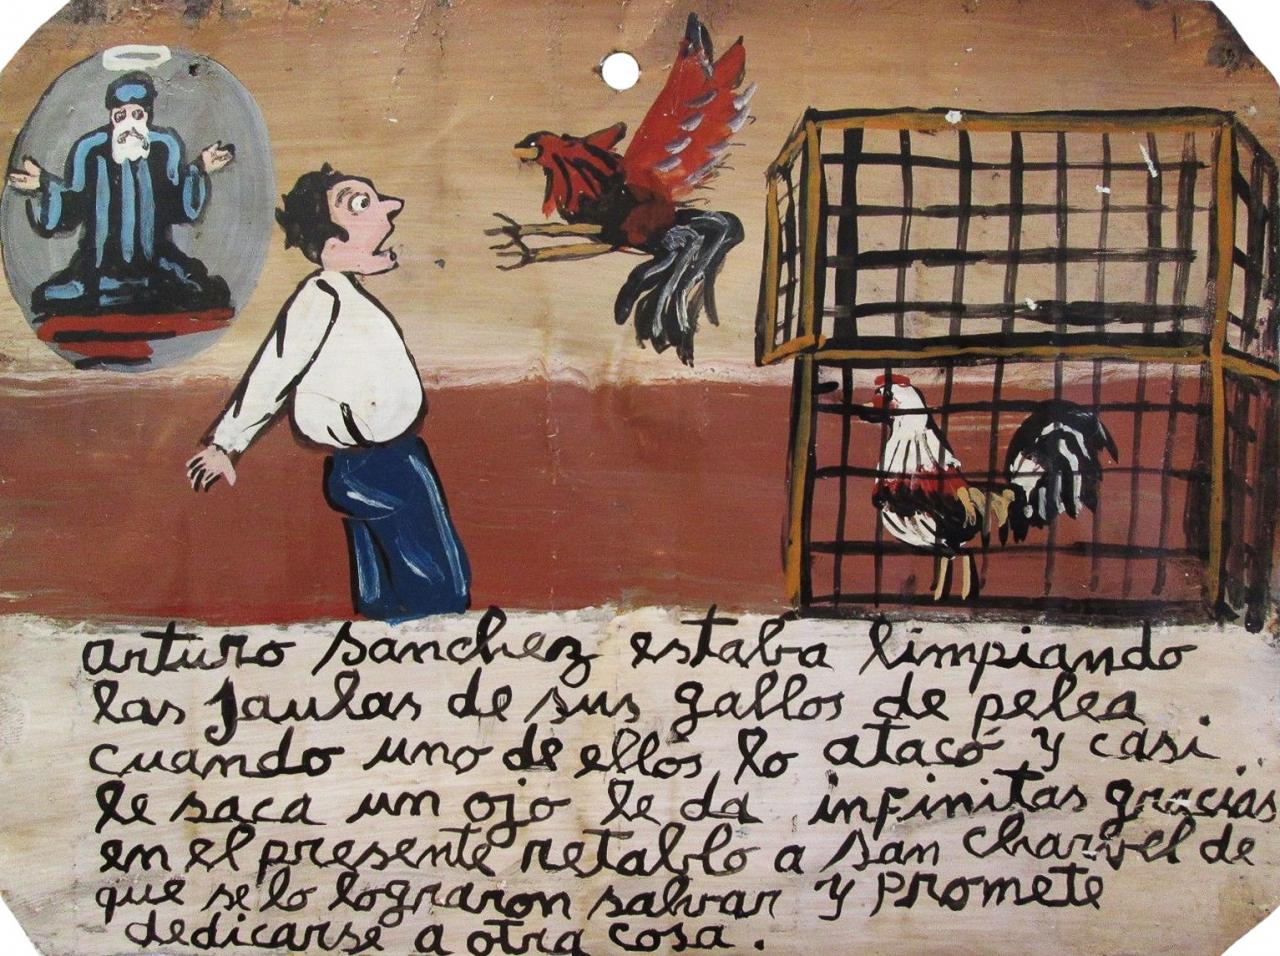 arturo sanchez estaba limpiando
las jaulas de sus gallos de pelea
cuando uno de ellos lo atacó y casi
le saca un ojo le da infinitas gracias
en el presente retablo a san charvel de
que se lo lograron salvar y promete
dedicarse a otra cosa.